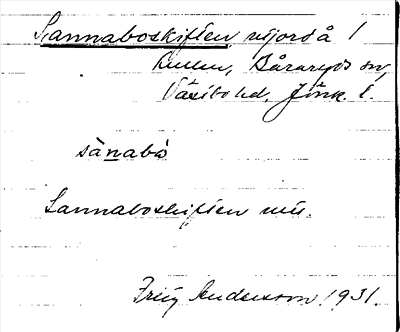 Sannaboskiften utjord å 1
Lum, Båraryds sn,
Västbo hd, Jönk. l.
sànabò
Sannaboskiften utj.
Frig Anderson 1931.